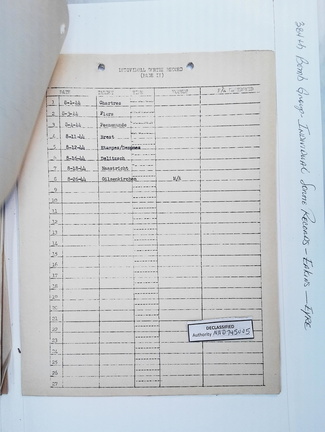 INDIVIDUAL SORTIE RECORD
DATE TARGET
1 8-1-44 Chartres
2 8-3-44 Flers
3 8-4-44 Peenemunde
4 8-11-44 Brest
5 8-12-44 Etampes/
6 8-16-44 Delitzsch
7 8-18-44 Maastricht
8 8-26-44 Gilsenkirchen N/B
9
10
11
12
13
14
15
16
17
18
19
20
21
22
23
24
25
26
27
DECLASSIFIED
Authority
384th Bomb Group - Individual Sortie Records - Eakins - Fyke